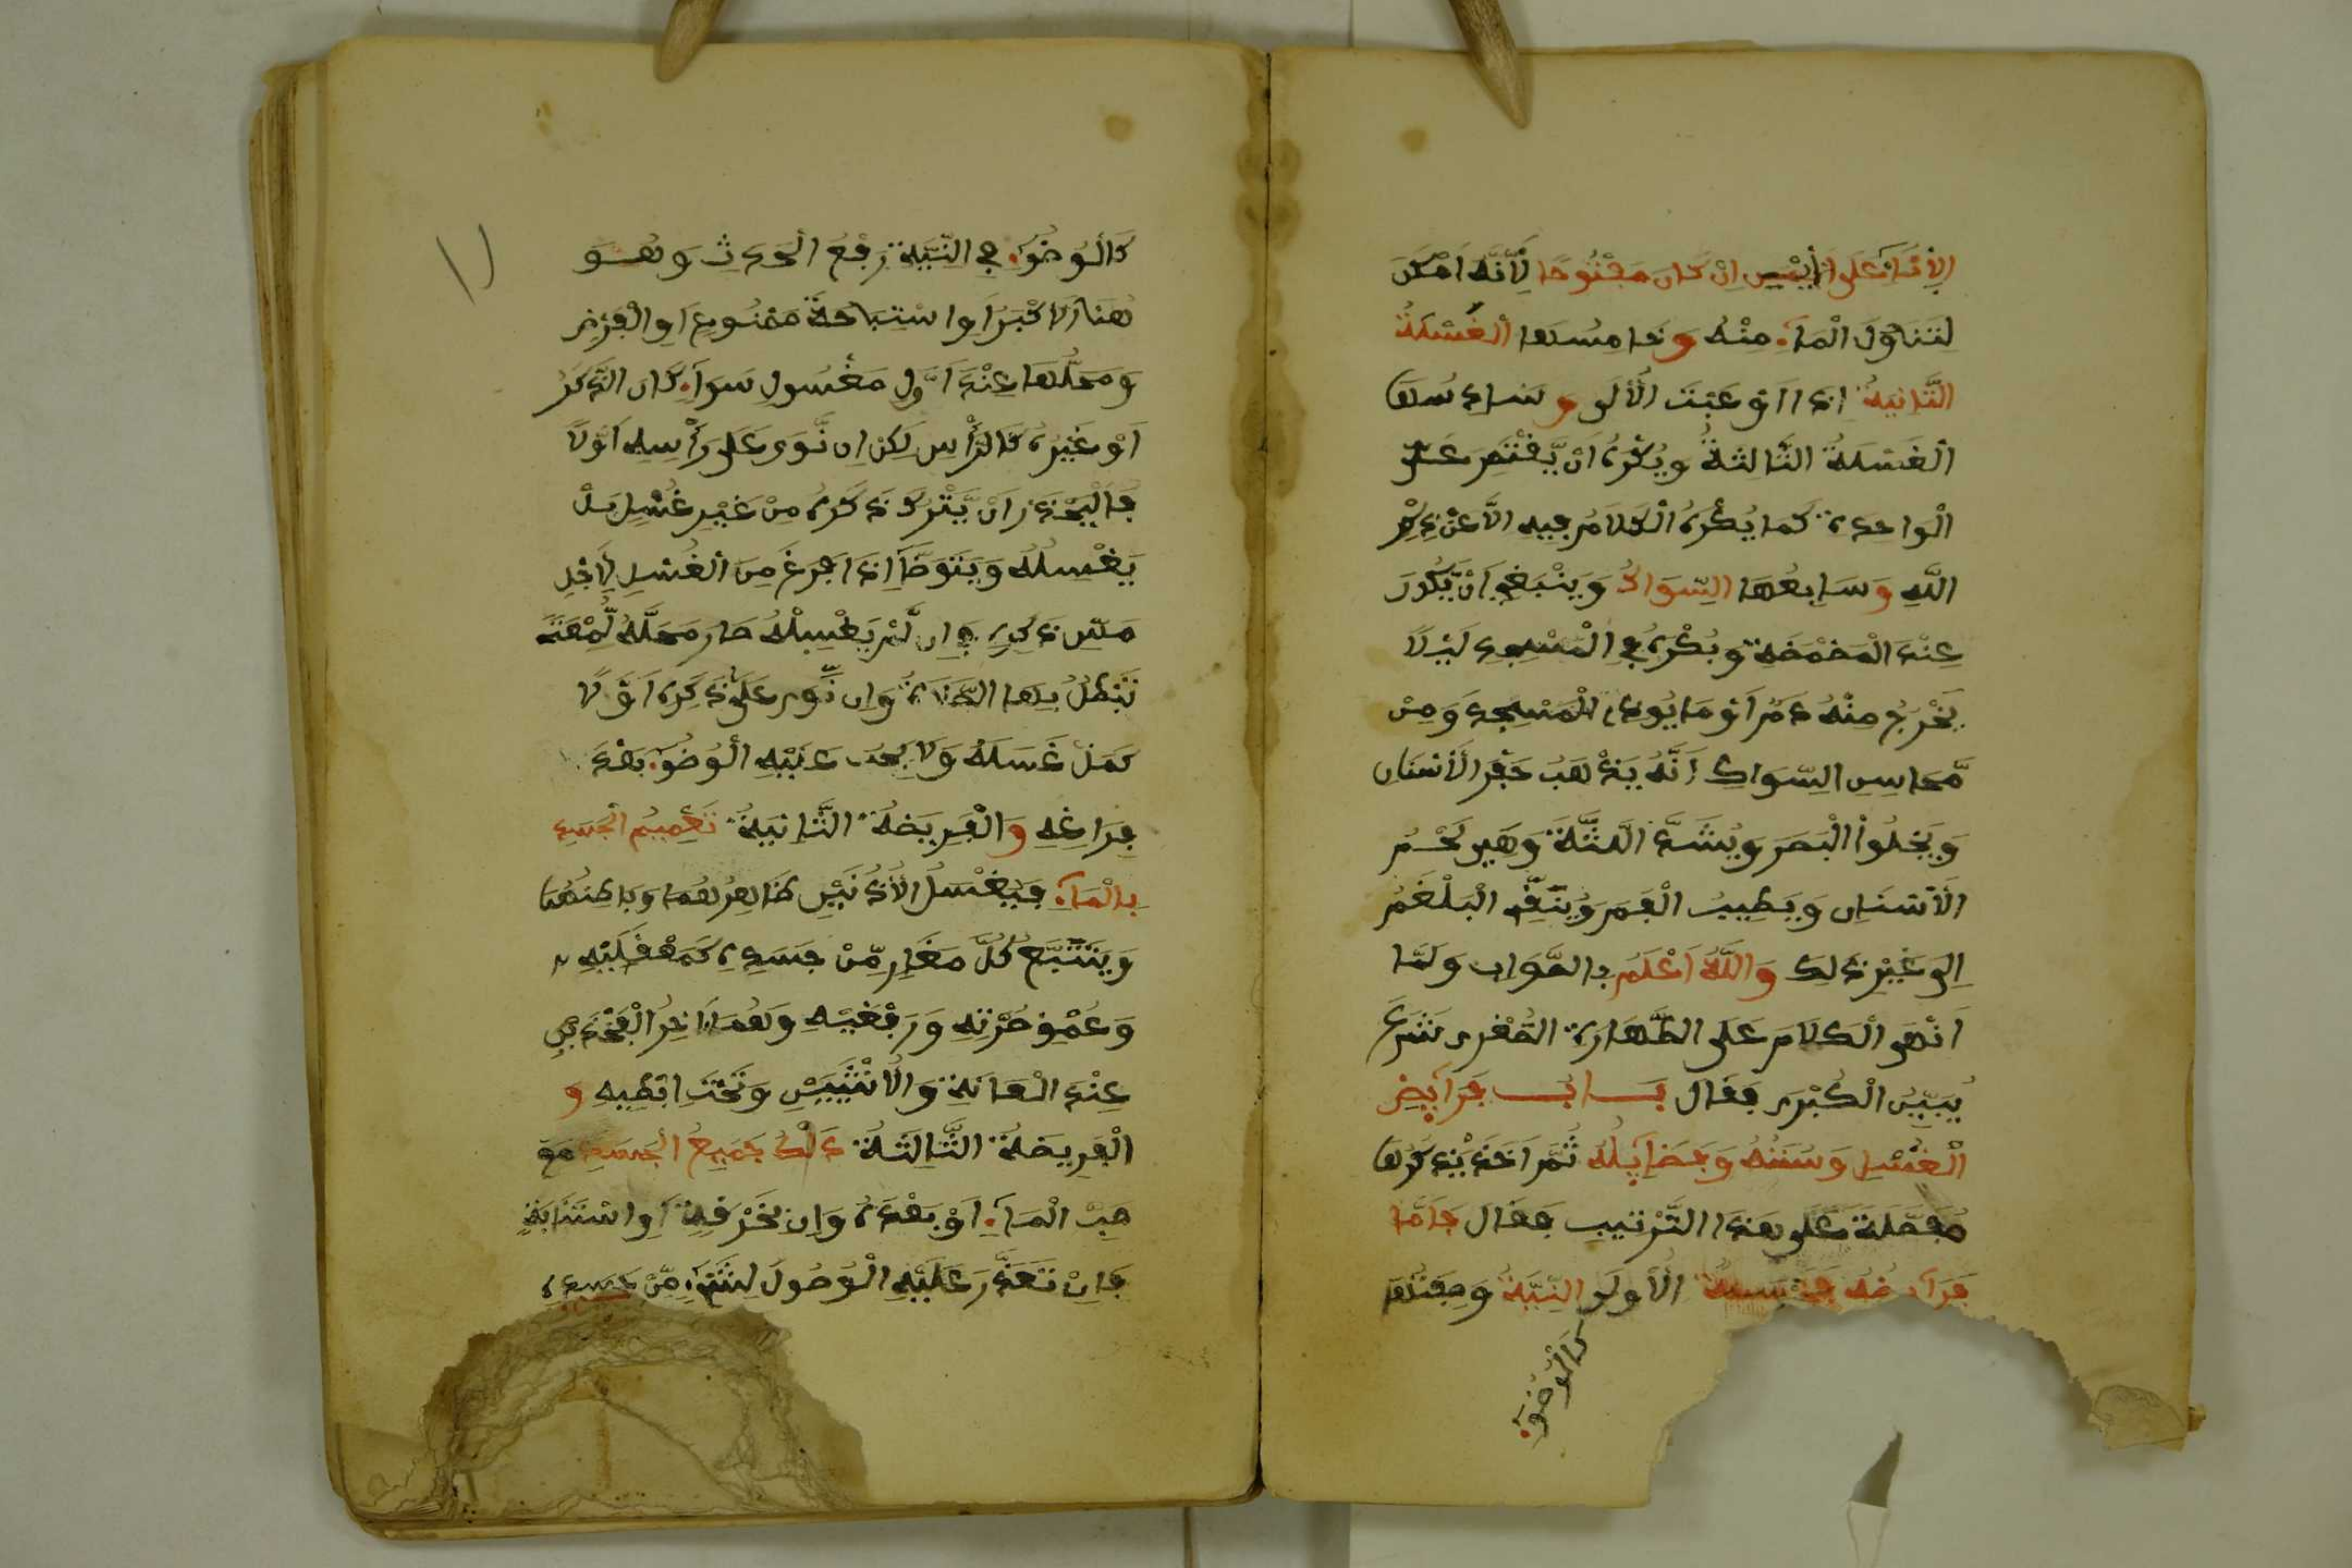 الإناء على اليمين ان كان مفتوحا لأنه امكن
لتناول الماء منه وخامسها الغسلة
الثانية اذا اوعبت الأولى وسادسها
الغسلة الثالثة ويكره ان يقتصر على
الواحدة كما يكره الكلام فيه الا عن ذكر
الله وسابعها السواك وينبغي ان يكون
عند المضمضة ويكره في المسجد ليلا
يخرج منه دم او ما يوذي المسجد ومن
محاسن السواك انه يذهب حفر الأسنان
ويجلوا البصر ويشد اللثة وهي لحم
الأسنان ويطيب الفم وينقي البلغم
الى غير ذلك والله اعلم بالصواب ولما
انهى الكلام على الطهارة الصغرى شرع
يبين الكبرى فقال باب فرايض
الغسل وسننه وفضايله ثم اخذ يذكرها
مفصلة على هذا الترتيب فقال فاما
فرايضه فخمسة الأولى النية وصفتها
كالوضوء
كالوضوء في النية رفع الحدث وهو
هنا الاكبر او استباحة ممنوع او الفرض
ومحلها عند اول مغسول سواء كان الذكر
او غيره كالرأس لكن ان نوى على رأسه اولا
فاليحذر ان يترك ذكره من غير غسل بل
يغسله ويتوضأ اذا فرغ من الغسل لأجل
مس ذكره فإن لم يغسله صار محله لمعة
تبطل بها الصلاة وان نوى على ذكره اولا
كمل غسله ولا يجب عليه الوضوء بعد
فراغه والفريضة الثانية تعميم الجسد
بالماء فيغسل الأذنين ظاهرهما وباطنهما
ويتتبع كل مغار من جسده كمعقليه
وعمق سرته ورفغيه وهما اخر الفخذين
عند العانة والأنثيين وتحت ابطيه و
الفريضة الثالثة دلك جميع الجسد مع
صب الماء او بعده وان بخرقة او استنابة
فإن تعذر عليه الوصول لشيء من جسده